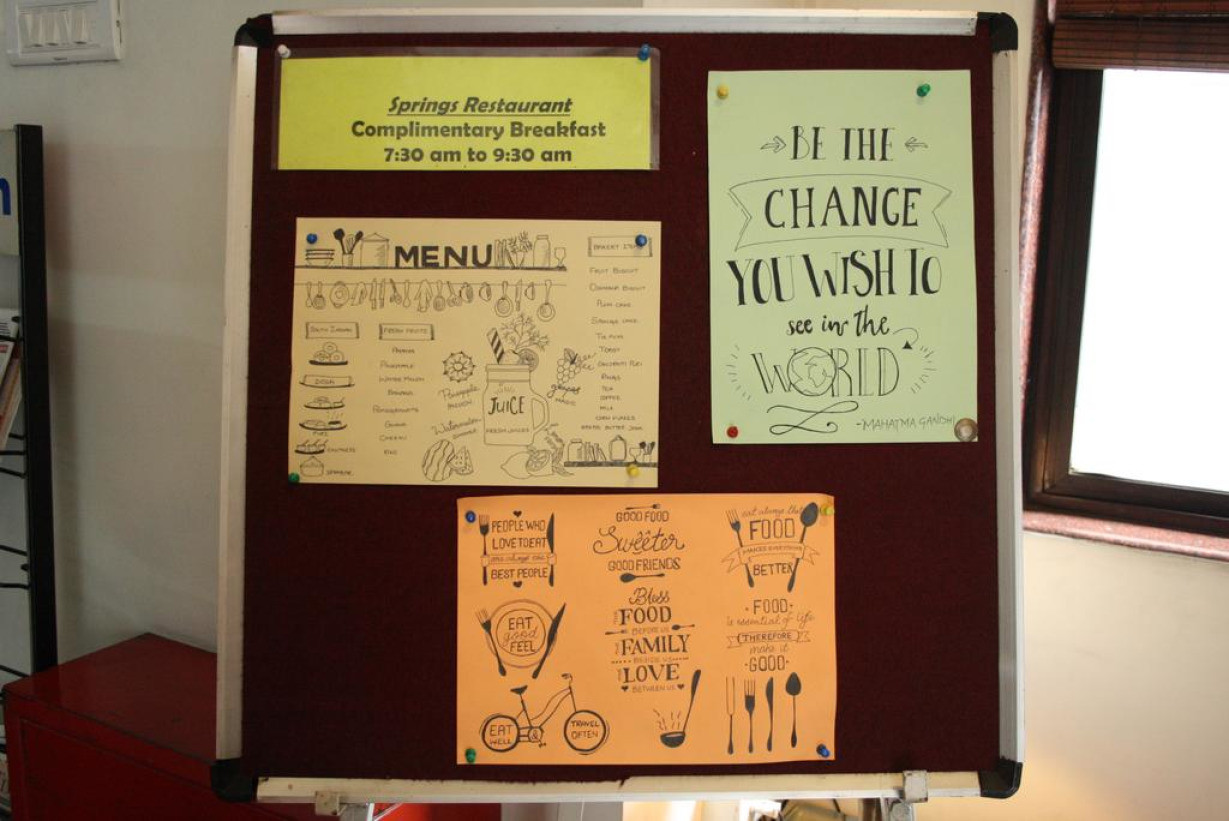 Springs Restaurant
Complimentary Breakfast
7:30 am to 9:30 am
BE THE
CHANGE
YOU WISH TO
see in the
WORLD
-MAHATMA GANDHI
MENU
SOUTH INDIAN
DOSA
CHUTNEYS
FRESH FRUITS
PAPAYA
PINEAPPLE
WATER MELON
BANANA
POMEGRANATE
GUAVA
CHEEKU
KIWI
Pineapple
Watermelon
JUICE
FRESH JUICES
grapes
MAGIC
BAKERY ITEMS
FRUIT BISCUIT
PLUM CAKE
SPONGE CAKE
TOAST
RUSKS
TEA
COFFEE
MILK
CORN FLAKES
BREAD BUTTER JAM
PEOPLE WHO
LOVE TO EAT
are always the
BEST PEOPLE
GOOD FOOD
Sweeter
GOOD FRIENDS
eat always that
FOOD
MAKES EVERYTHING
BETTER
EAT
good
FEEL
Bless
THE FOOD
BEFORE US
THE FAMILY
BESIDE US
THE LOVE
BETWEEN US
·FOOD·
is essential of life
THEREFORE
make it
·GOOD·
EAT
WELL
&
TRAVEL
OFTEN